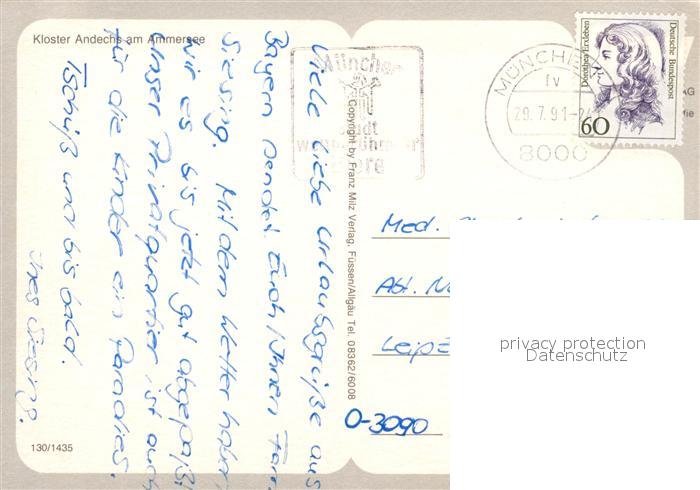 Kloster Andechs am Ammersee
Viele liebe Urlaubsgrüße aus
Bayern sendet Euch/Ihnen Fam.
Giesing. Mit dem Wetter haben
wir es bis jetzt gut abgepaßt
Unser Privatquartier ist auch
für die Kinder ein Paradies.
Tschüß und bis bald.
Giesing.
130/1435
Copyright by Franz Milz Verlag, Füssen/Allgäu Tel. 08362/6008
München
Stadt
MÜNCHEN
IV
29.7.91-2
8000
Dorothea Erxleben
Deutsche Bundespost
60
AG
Med.
Abt. N
Leipz
O-3090
privacy protection
Datenschutz